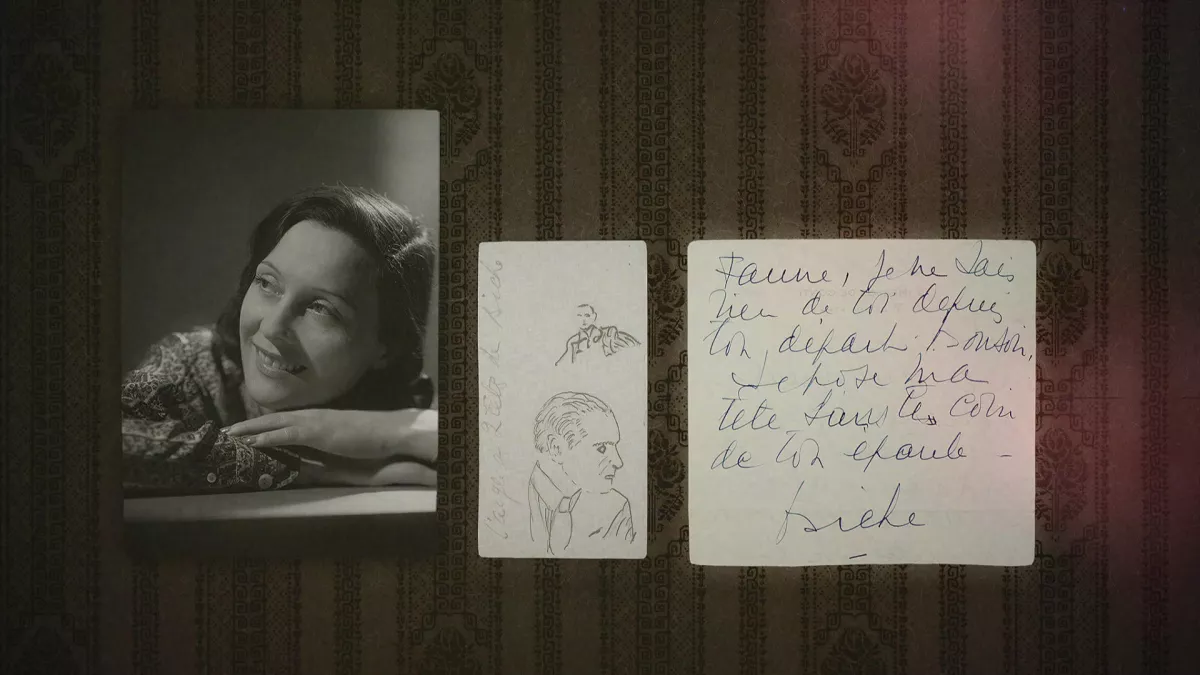 de biche
Faune, je ne sais
rien de toi depuis
ton départ. bonsoir,
je pose ma
tête dans le coin
de ton épaule –
biche